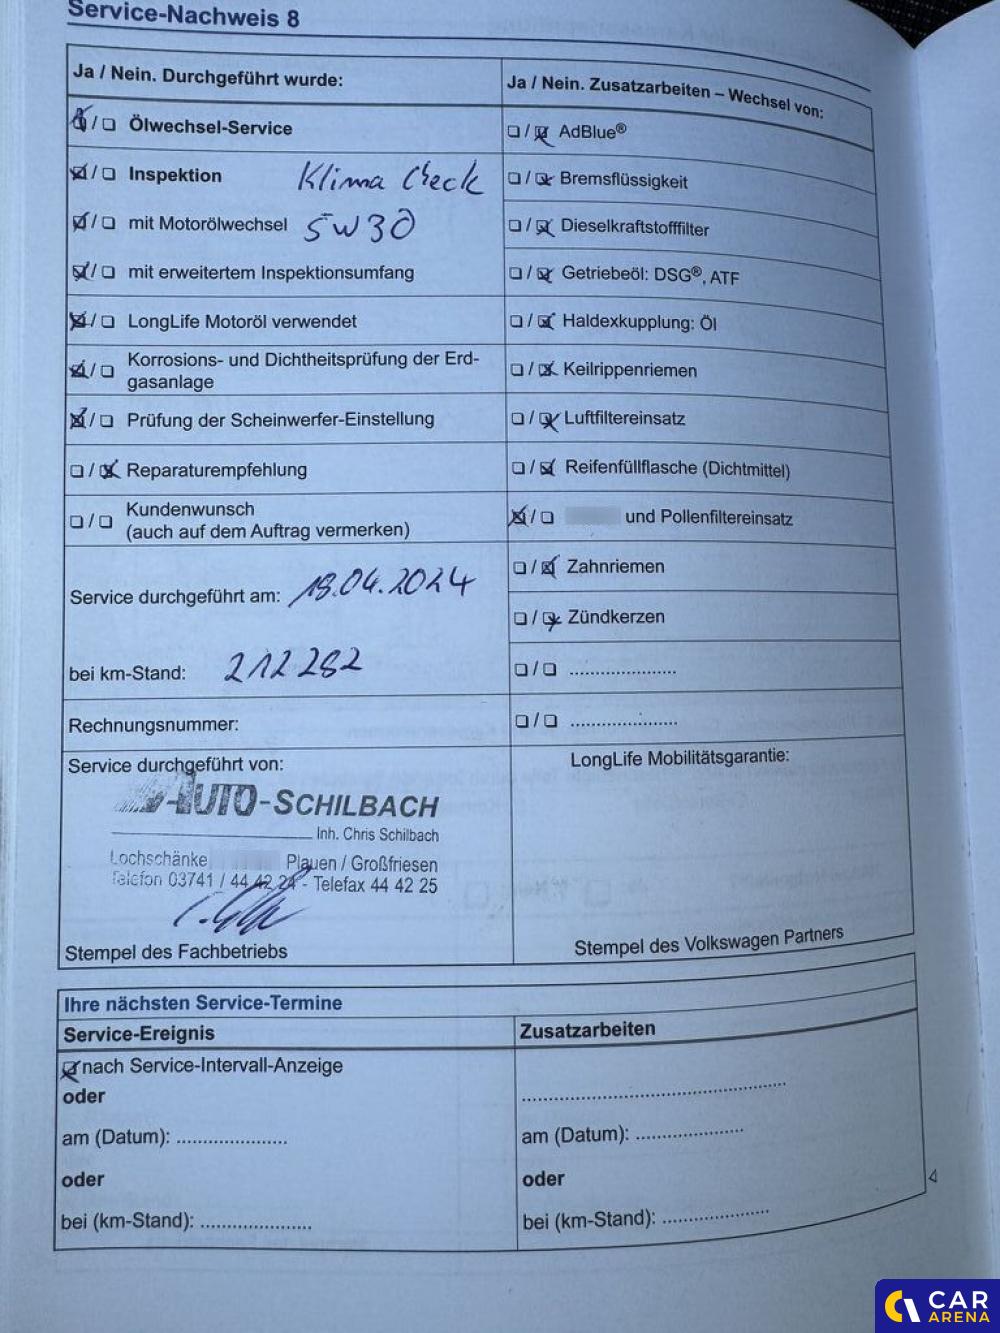 Service-Nachweis 8
Ja / Nein. Durchgeführt wurde:
Ölwechsel-Service
Inspektion Klima Check
mit Motorölwechsel 5W30
mit erweitertem Inspektionsumfang
LongLife Motoröl verwendet
Korrosions- und Dichtheitsprüfung der Erd-
gasanlage
Prüfung der Scheinwerfer-Einstellung
Reparaturempfehlung
Kundenwunsch
(auch auf dem Auftrag vermerken)
Service durchgeführt am: 18.04.2024
bei km-Stand: 212282
Rechnungsnummer:
Service durchgeführt von:
AUTO-SCHILBACH
Inh. Chris Schilbach
Lochschänke Plauen / Großfriesen
Telefon 03741 / 44 42 24 - Telefax 44 42 25
Stempel des Fachbetriebs
Ja / Nein. Zusatzarbeiten – Wechsel von:
AdBlue®
Bremsflüssigkeit
Dieselkraftstofffilter
Getriebeöl: DSG®, ATF
Haldexkupplung: Öl
Keilrippenriemen
Luftfiltereinsatz
Reifenfüllflasche (Dichtmittel)
und Pollenfiltereinsatz
Zahnriemen
Zündkerzen
LongLife Mobilitätsgarantie:
Stempel des Volkswagen Partners
Ihre nächsten Service-Termine
Service-Ereignis
nach Service-Intervall-Anzeige
oder
am (Datum): .....................
oder
bei (km-Stand): .....................
Zusatzarbeiten
am (Datum): .....................
oder
bei (km-Stand): .....................
CAR
ARENA